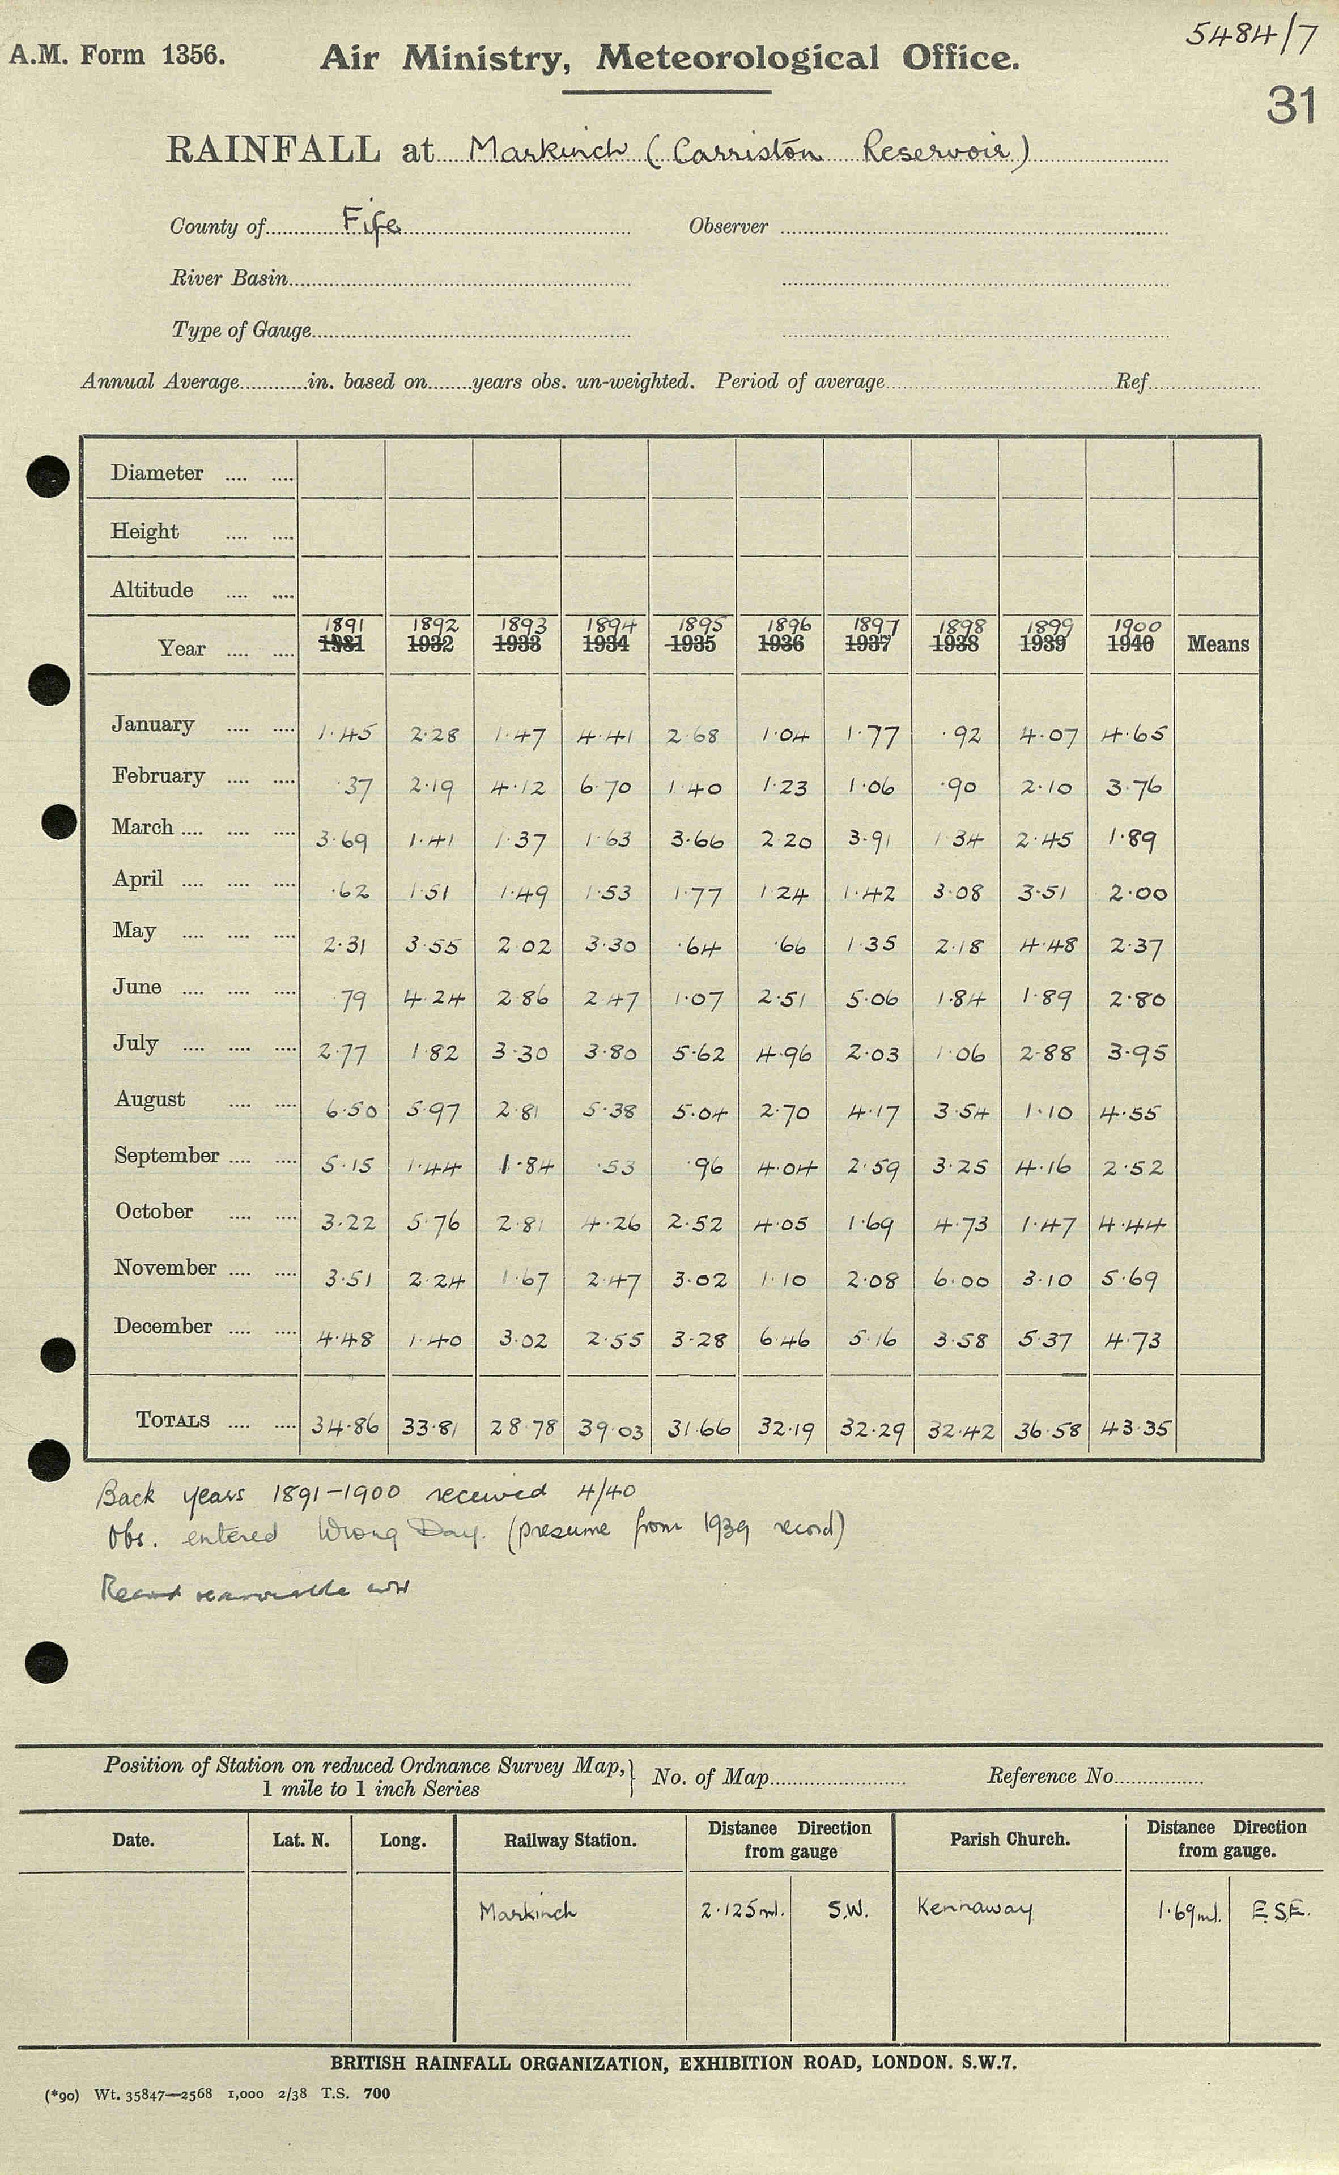 5484/7
A.M. Form 1356. Air Ministry, Meteorological Office.
31
RAINFALL at Markinch (Carriston Reservoir)
County of Fife Observer
River Basin
Type of Gauge
Annual Average in. based on years obs. un-weighted. Period of average Ref
Diameter
Height
Altitude
1891 1892 1893 1894 1895 1896 1897 1898 1899 1900
Year 1931 1932 1933 1934 1935 1936 1937 1938 1939 1940 Means
January 1.45 2.28 1.47 4.41 2.68 1.04 1.77 .92 4.07 4.65
February .37 2.19 4.12 6.70 1.40 1.23 1.06 .90 2.10 3.76
March 3.69 1.41 1.37 1.63 3.66 2.20 3.91 1.34 2.45 1.89
April .62 1.51 1.49 1.53 1.77 1.24 1.42 3.08 3.51 2.00
May 2.31 3.55 2.02 3.30 .64 .66 1.35 2.18 4.48 2.37
June .79 4.24 2.86 2.47 1.07 2.51 5.06 1.84 1.89 2.80
July 2.77 1.82 3.30 3.80 5.62 4.96 2.03 1.06 2.88 3.95
August 6.50 5.97 2.81 5.38 5.04 2.70 4.17 3.54 1.10 4.55
September 5.15 1.44 1.84 .53 .96 4.04 2.59 3.25 4.16 2.52
October 3.22 5.76 2.81 4.26 2.52 4.05 1.69 4.73 1.47 4.44
November 3.51 2.24 1.67 2.47 3.02 1.10 2.08 6.00 3.10 5.69
December 4.48 1.40 3.02 2.55 3.28 6.46 5.16 3.58 5.37 4.73
TOTALS 34.86 33.81 28.78 39.03 31.66 32.19 32.29 32.42 36.58 43.35
Back years 1891-1900 received 4/40
Obs. entered Wrong Day. (presume from 1939 record)
Position of Station on reduced Ordnance Survey Map, No. of Map Reference No
1 mile to 1 inch Series
Date. Lat. N. Long. Railway Station. Distance Direction from gauge Parish Church. Distance Direction from gauge.
Markinch 2.125ml. S.W. Kennaway 1.69ml. E.S.E.
BRITISH RAINFALL ORGANIZATION, EXHIBITION ROAD, LONDON. S.W.7.
(*90) Wt. 35847—2568 1,000 2/38 T.S. 700